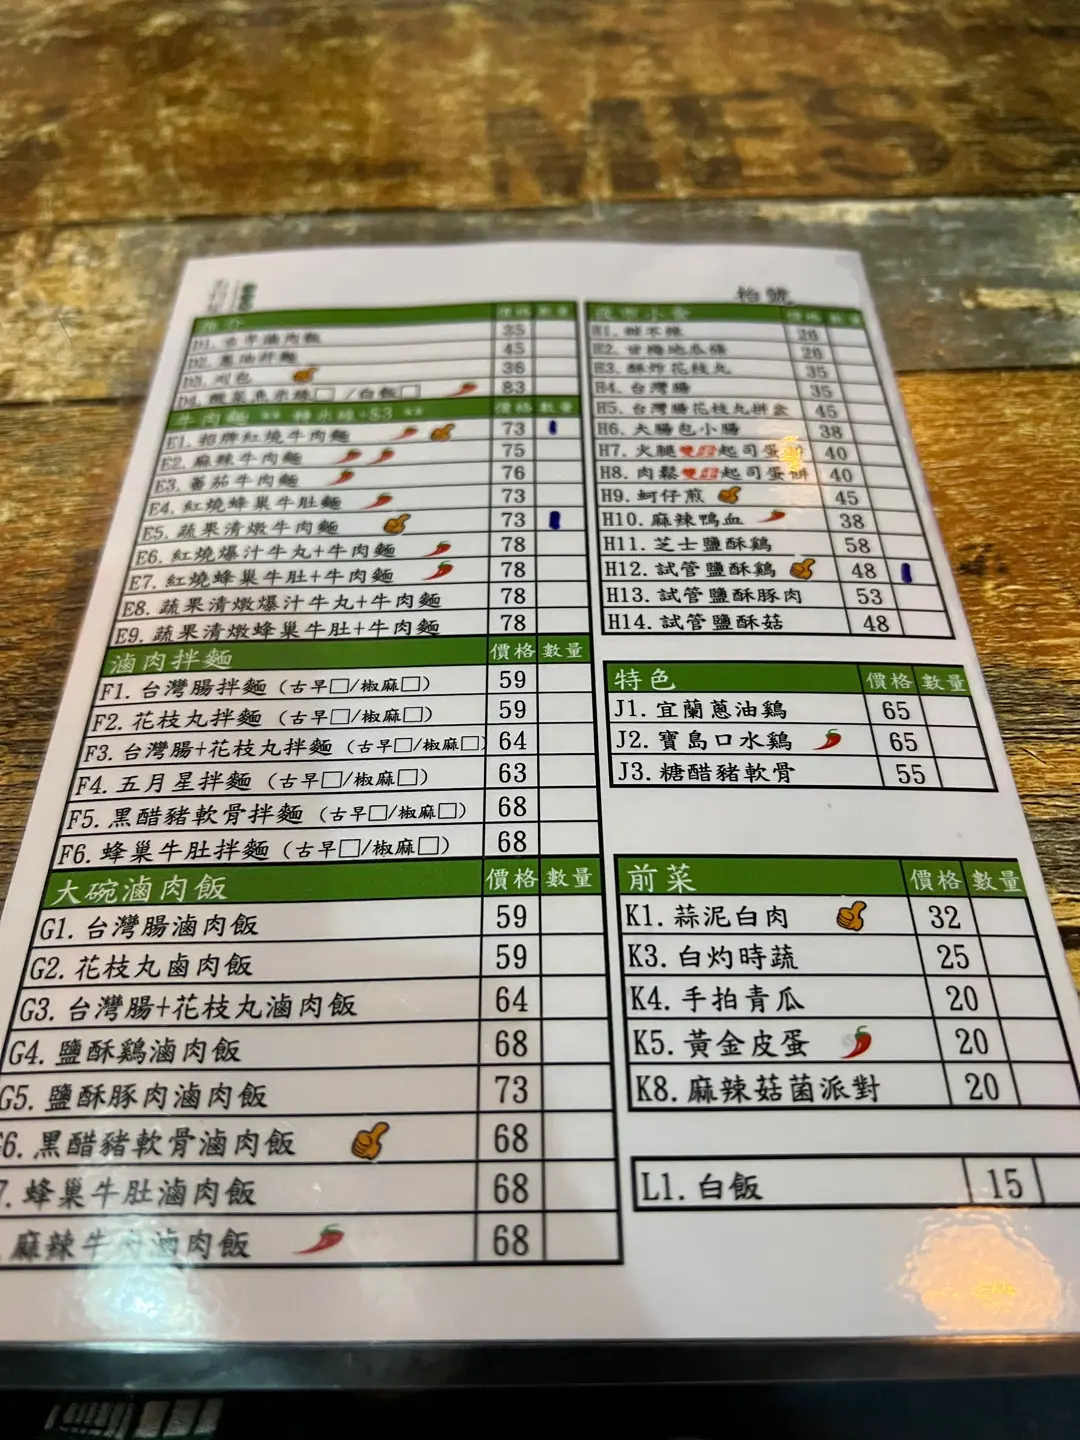 枱號
價格 數量
35
D2. 蔥油拌麵 45
D3. 刈包 36
/白飯□ 83
牛肉麵 ** 轉米線+$3 ** 價格 數量
E1. 招牌紅燒牛肉麵 73
E2. 麻辣牛肉麵 75
E3. 蕃茄牛肉麵 76
E4. 紅燒蜂巢牛肚麵 73
E5. 蔬果清燉牛肉麵 73
E6. 紅燒爆汁牛丸+牛肉麵 78
E7. 紅燒蜂巢牛肚+牛肉麵 78
E8. 蔬果清燉爆汁牛丸+牛肉麵 78
E9. 蔬果清燉蜂巢牛肚+牛肉麵 78
滷肉拌麵 價格 數量
F1. 台灣腸拌麵 (古早□/椒麻□) 59
F2. 花枝丸拌麵 (古早□/椒麻□) 59
F3. 台灣腸+花枝丸拌麵 (古早□/椒麻□) 64
F4. 五月星拌麵 (古早□/椒麻□) 63
F5. 黑醋豬軟骨拌麵 (古早□/椒麻□) 68
F6. 蜂巢牛肚拌麵 (古早□/椒麻□) 68
大碗滷肉飯 價格 數量
G1. 台灣腸滷肉飯 59
G2. 花枝丸鹵肉飯 59
G3. 台灣腸+花枝丸滷肉飯 64
G4. 鹽酥鷄滷肉飯 68
G5. 鹽酥豚肉滷肉飯 73
6. 黑醋豬軟骨滷肉飯 68
7. 蜂巢牛肚滷肉飯 68
麻辣牛肉滷肉飯 68
夜市小食 價格 數量
H1. 甜不辣
H2. 甘梅地瓜條
H3. 酥炸花枝丸 35
H4. 台灣腸 35
H5. 台灣腸花枝丸拼盆 45
H6. 大腸包小腸 38
H7. 火腿雙蛋起司蛋餅 40
H8. 肉鬆雙蛋起司蛋餅 40
H9. 蚵仔煎 45
H10. 麻辣鴨血 38
H11. 芝士鹽酥鷄 58
H12. 試管鹽酥鷄 48
H13. 試管鹽酥豚肉 53
H14. 試管鹽酥菇 48
特色 價格 數量
J1. 宜蘭蔥油鷄 65
J2. 寶島口水鷄 65
J3. 糖醋豬軟骨 55
前菜 價格 數量
K1. 蒜泥白肉 32
K3. 白灼時蔬 25
K4. 手拍青瓜 20
K5. 黃金皮蛋 20
K8. 麻辣菇菌派對 20
L1. 白飯 15